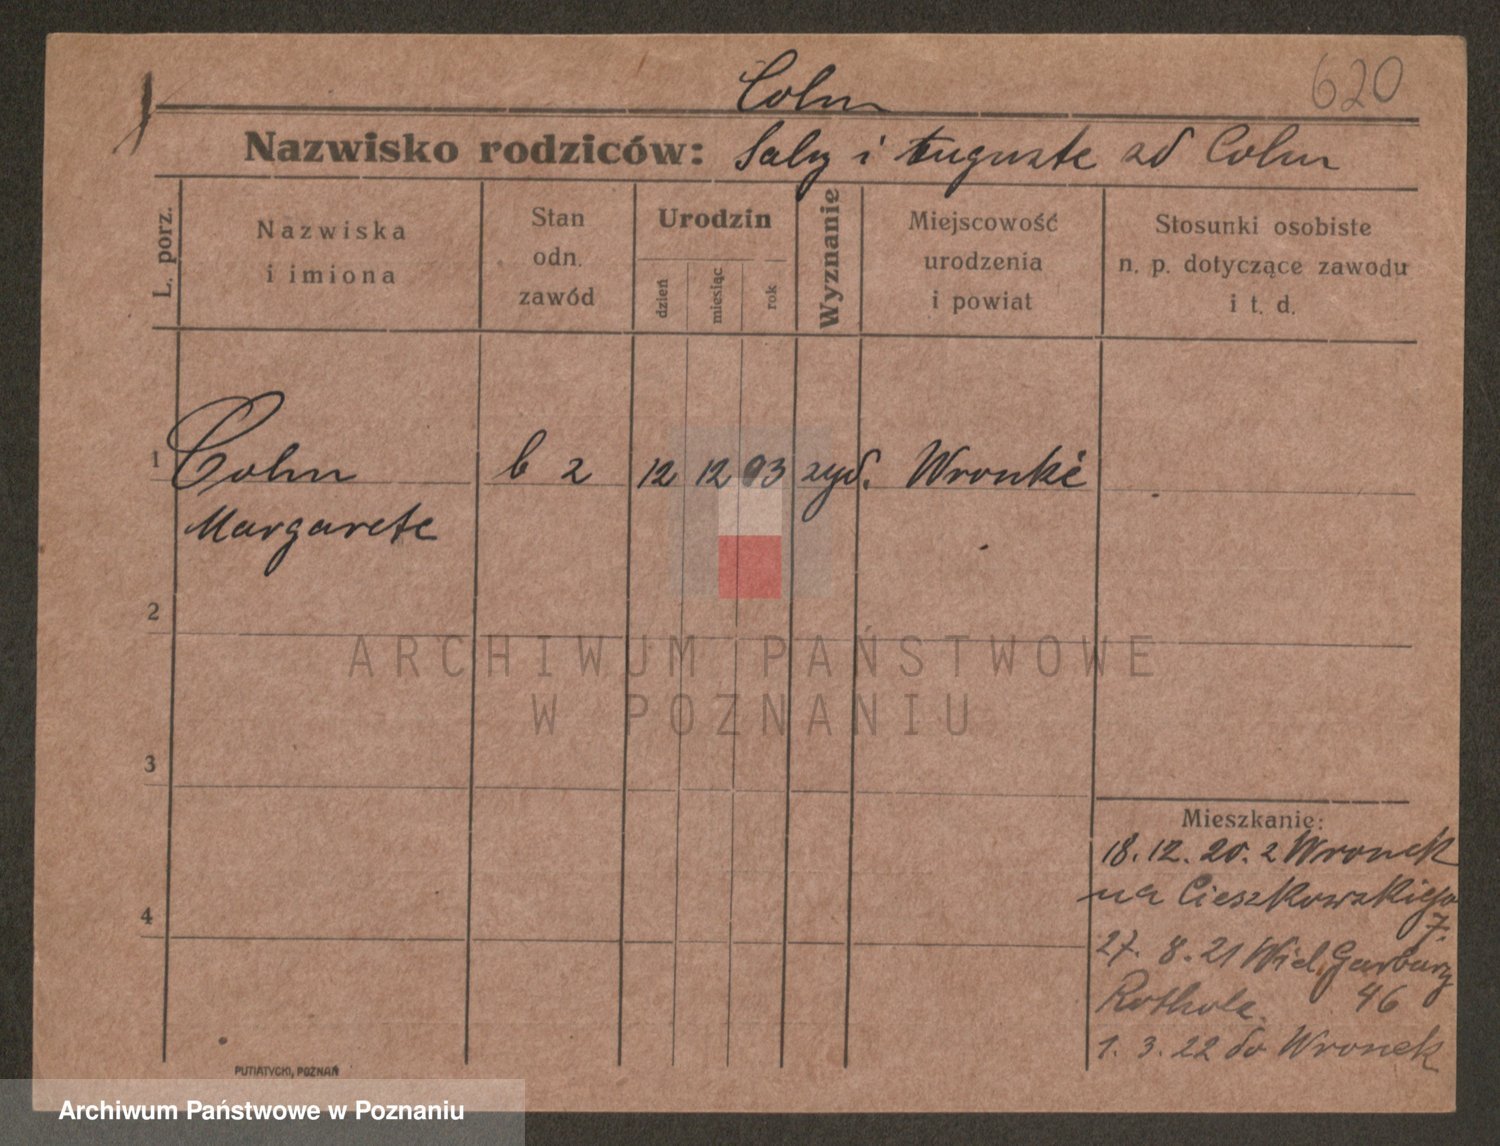 620
Cohn
Nazwisko rodziców: Saly i Auguste zd Cohn
L. porz.
Nazwiska i imiona
Stan odn. zawód
Urodzin
dzień
miesiąc
rok
Wyznanie
Miejscowość urodzenia i powiat
Stosunki osobiste n. p. dotyczące zawodu i t. d.
1 Cohn b z 12 12 93 żyd. Wronki
Margarete
2
ARCHIWUM PAŃSTWOWE
W POZNANIU
3
Mieszkanie:
18.12.20. z Wronek
na Cieszkowskiego
7.
4
27. 8. 21 Wiel. Garbary
46
1. 3. 22 do Wronek
PUTIATYCKI, POZNAŃ
Archiwum Państwowe w Poznaniu